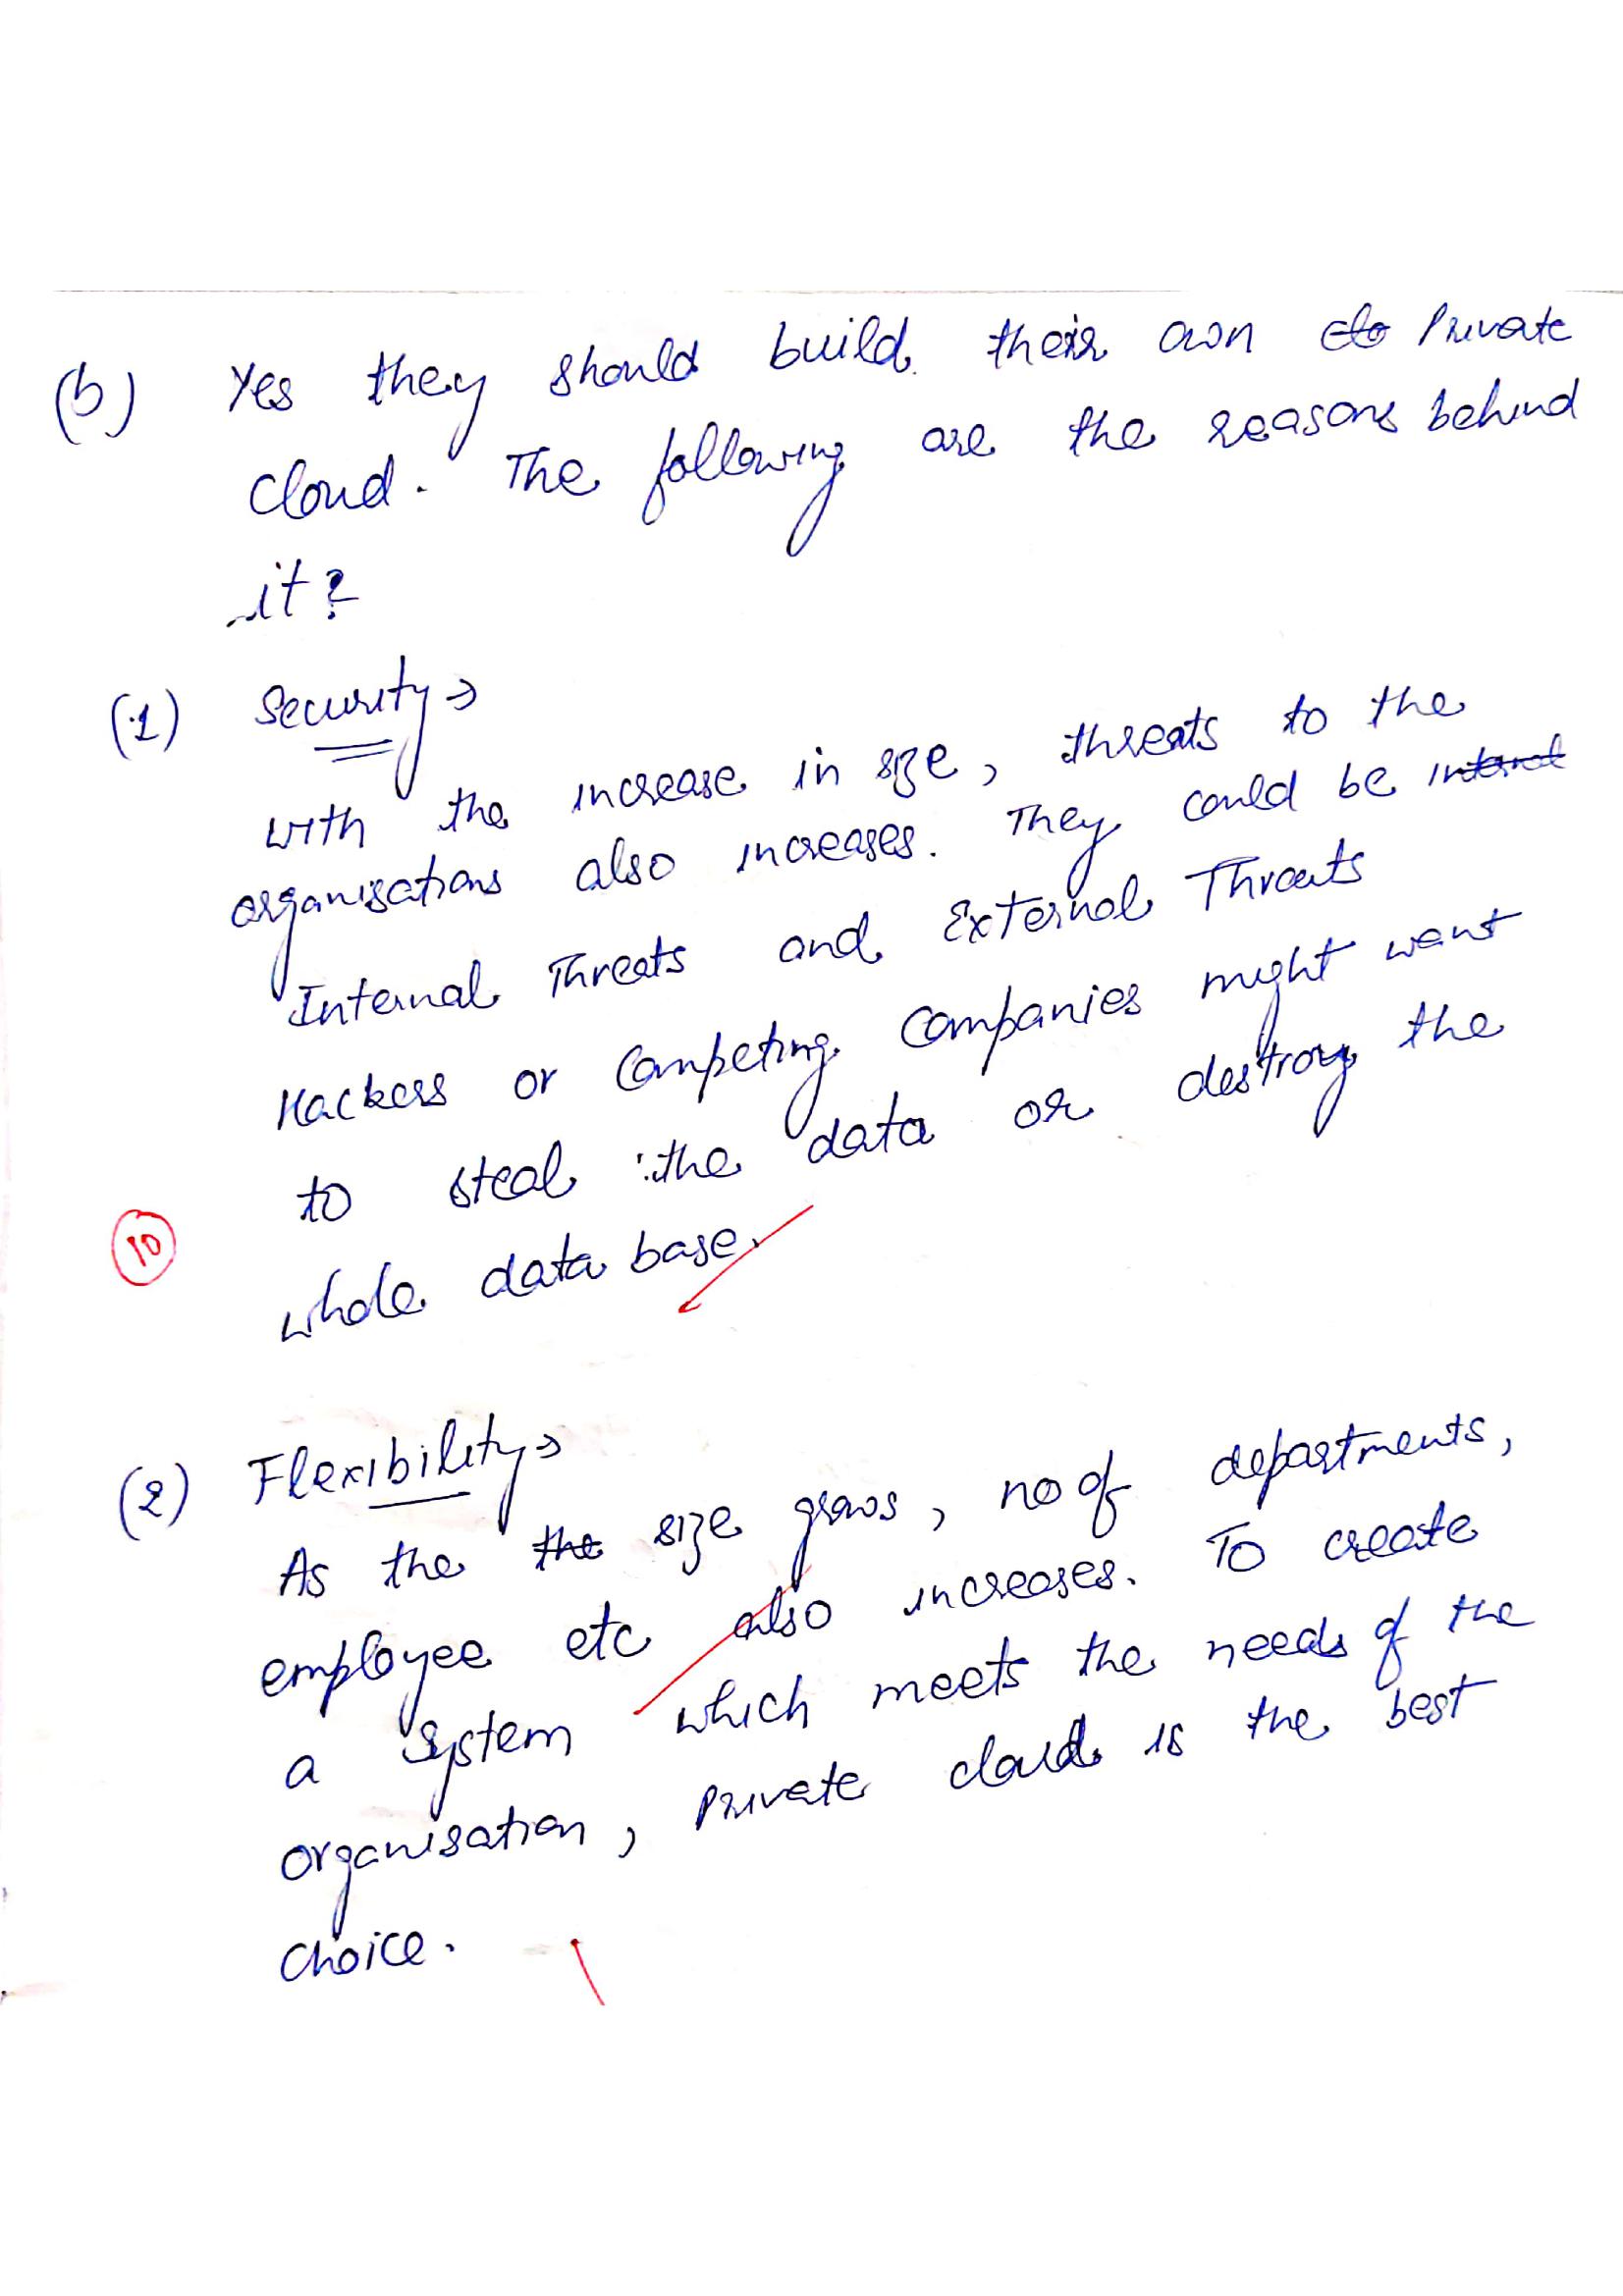 (b) Yes they should build their own clo Private
cloud. The following are the reasons behind
it?
(1) Security →
with the increase in size, threats to the
organisations also increases. They could be internal
Internal Threats and External Threats
Hackers or Competing Companies might want
to steal the data or destroy the
whole data base.
10
(2) Flexibility →
As the the size grows, no of departments,
employee etc also increases. To create
a system which meets the needs of the
organisation, Private cloud is the best
choice.